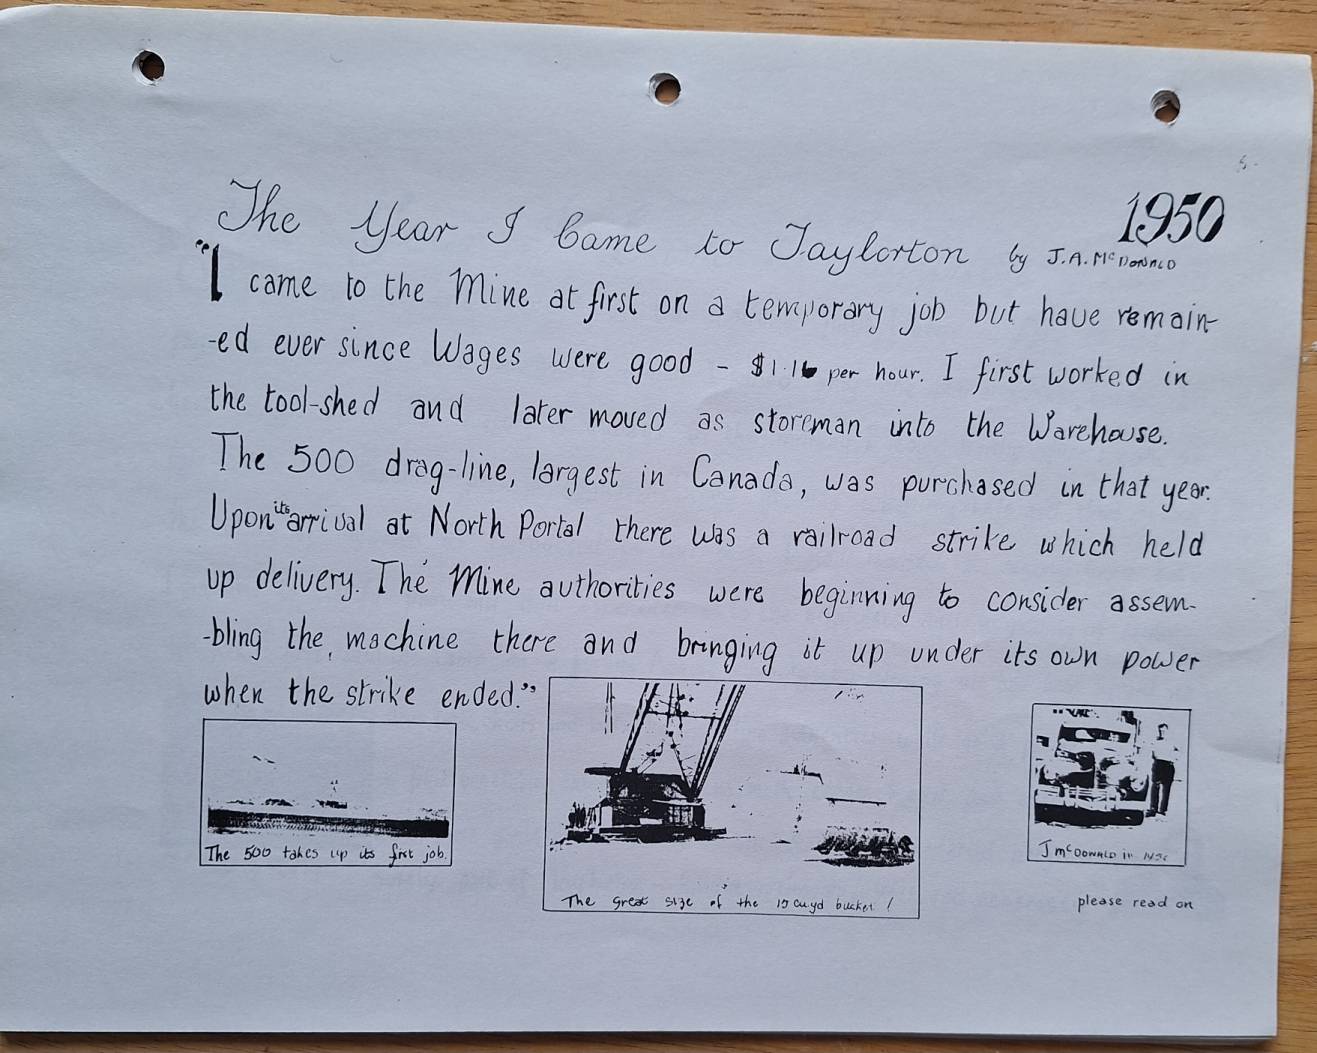 1950
The Year I Came to Taylorton by J.A. McDONALD
"I came to the Mine at first on a temporary job but have remain-
-ed ever since Wages were good - $1.16 per hour. I first worked in
the tool-shed and later moved as storeman into the Warehouse.
The 500 drag-line, largest in Canada, was purchased in that year.
Upon its arrival at North Portal there was a railroad strike which held
up delivery. The Mine authorities were beginning to consider assem-
-bling the machine there and bringing it up under its own power
when the strike ended."
The 500 takes up its first job.
The great size of the 15 cuyd bucket!
J McDONALD in
please read on